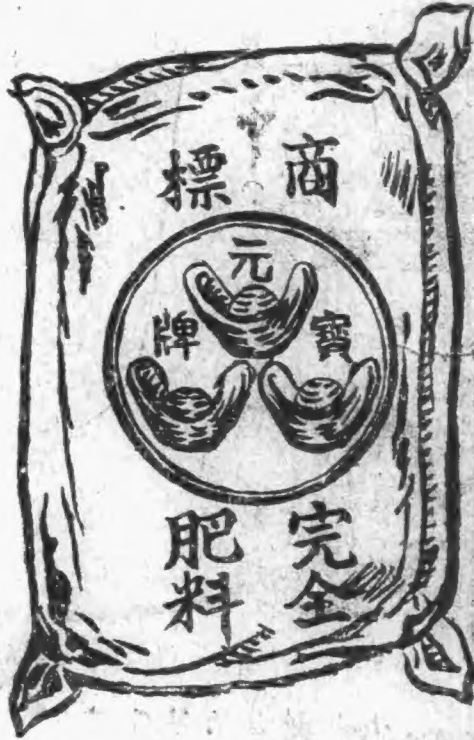 商標
元
寶
牌
完全
肥料